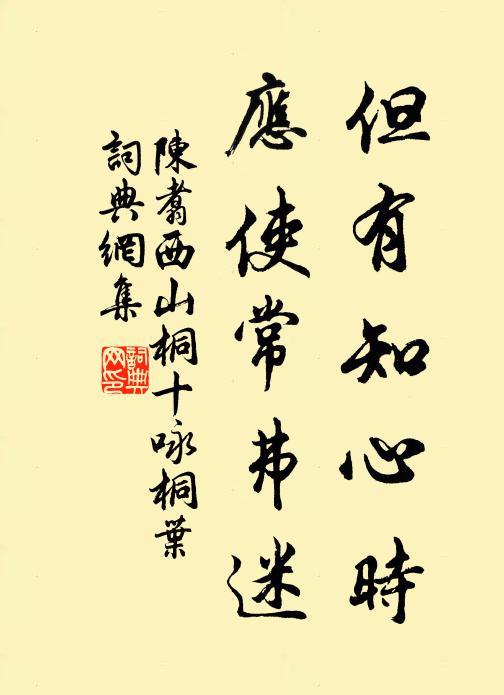 但有知心時
應使常弗迷
陳翥西山桐十咏桐葉
詞典網集
詞典網印